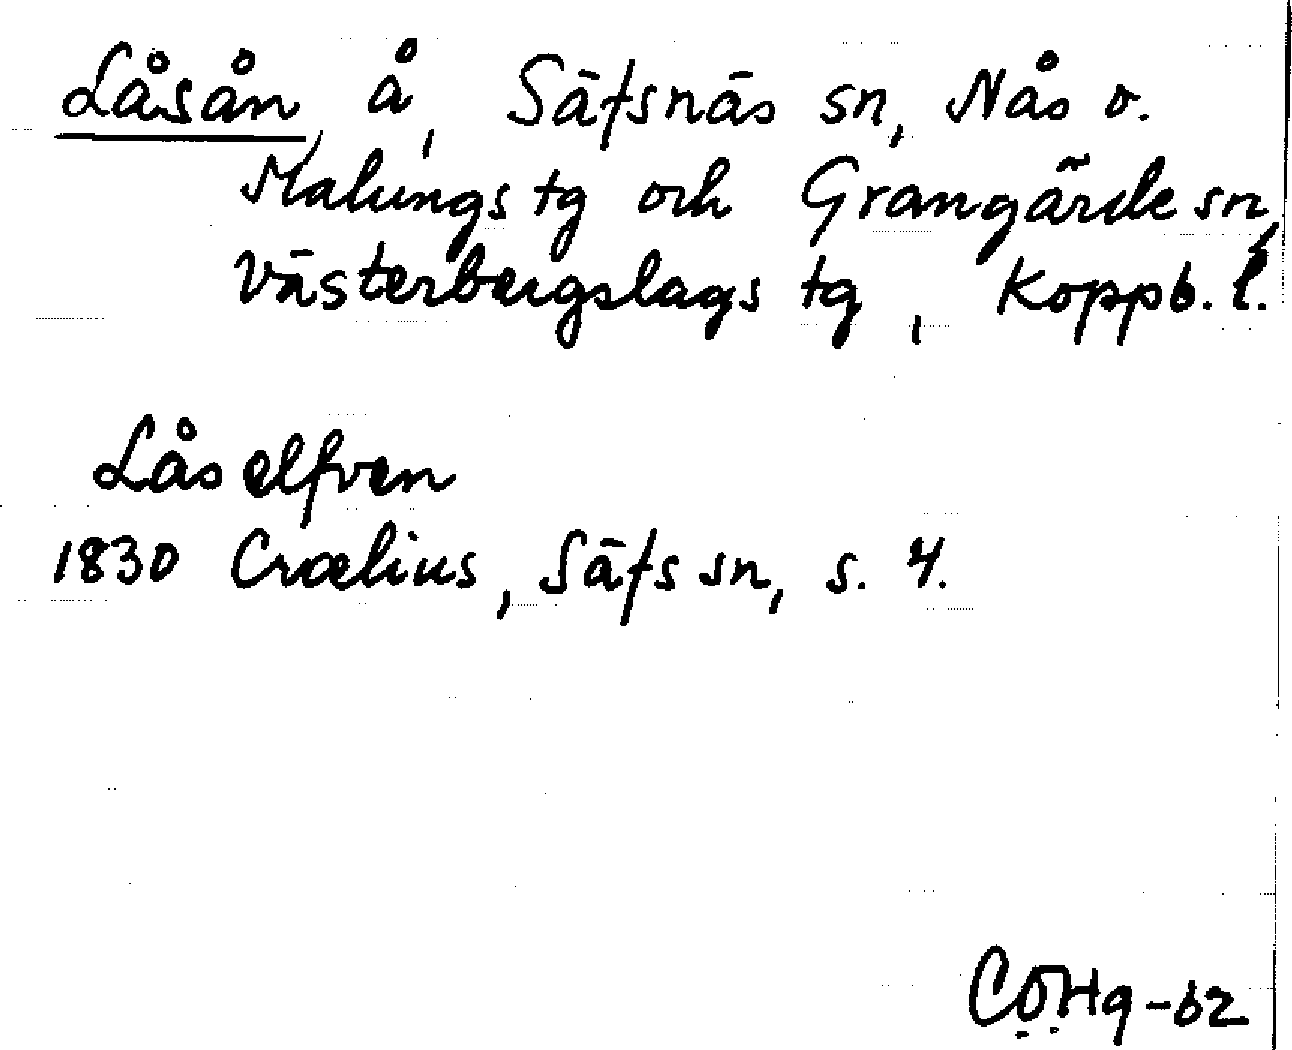 Låsån, å, Säfsnäs sn, Nås o.
Malungs tg och Grangärde sn,
Västerbergslags tg, Koppb. l.
Låselfven
1830 Crælius, Säfs sn, s. 4.
CÖHg-62